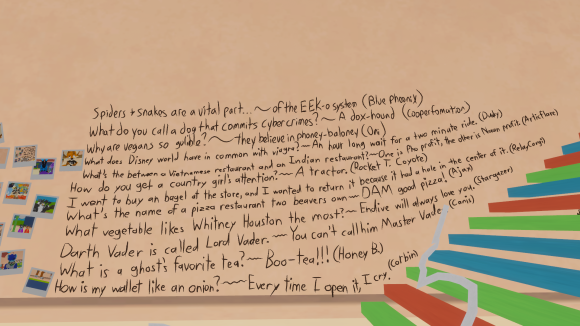 Spiders + snakes are a vital part... ~ of the EEK-o system (Blue Phoenix)
What do you call a dog that commits cyber crimes? ~ A dox-hound (Cooperfomation)
Why are vegans so gullible? ~ They believe in phoney-baloney (Oni)
What does Disney world have in common with viagra? ~ An hour long wait for a two minute ride. (Duby)
What's the between a Vietnamese restaurant and an Indian restaurant? ~ One is Pho profit, the other is Naan profit. (Artiflare)
How do you get a country girl's attention? ~ A tractor. (Rocket T. Coyote)
I want to buy an bagel at the store, and I wanted to return it because it had a hole in the center of it. (RelayCorgi)
What's the name of a pizza restaurant two beavers own ~ DAM good pizza! (Ajax)
What vegetable likes Whitney Houston the most? ~ Endive will always love you. (Stargazer)
Darth Vader is called Lord Vader. ~ You can't call him Master Vader (Canis)
What is a ghost's favorite tea? ~ Boo-tea!!! (Honey B.)
How is my wallet like an onion? ~~ Every time I open it, I cry. (Corbin)